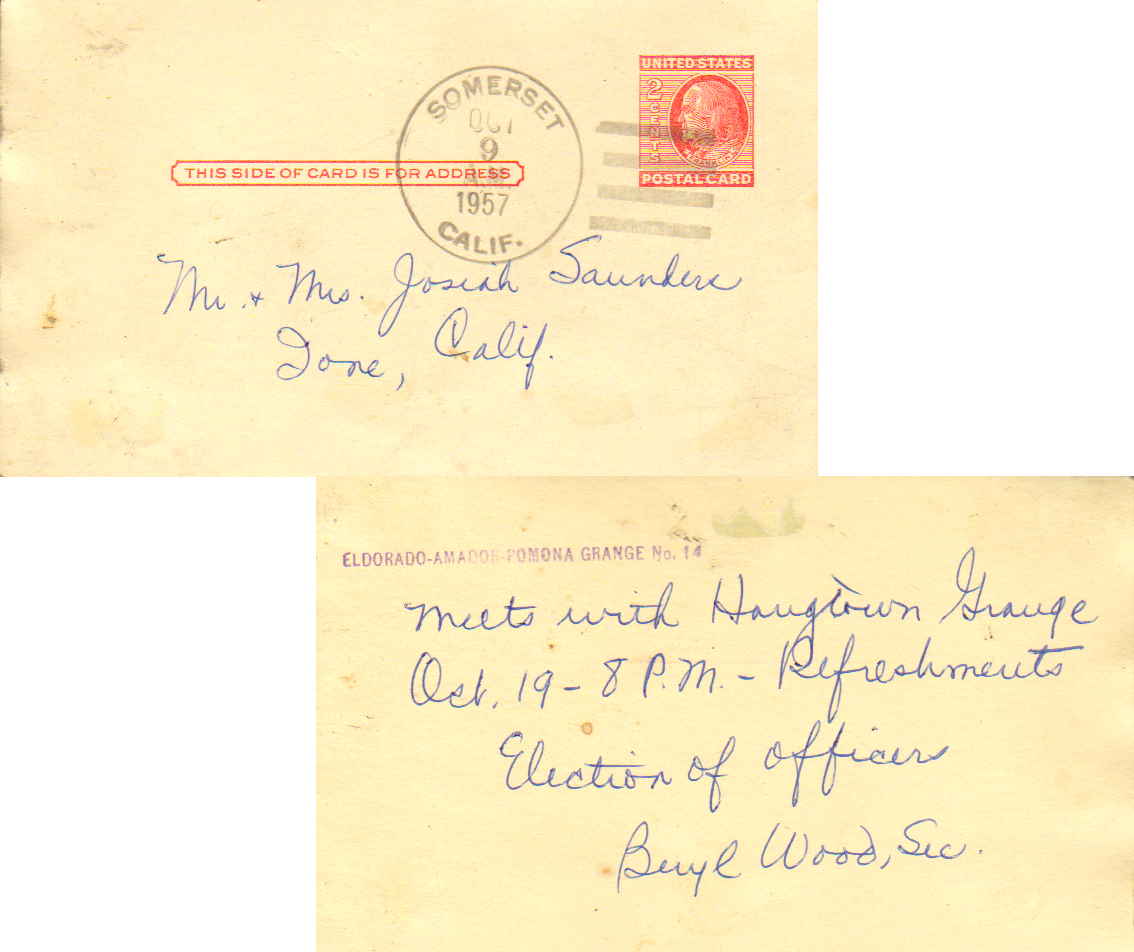 UNITED STATES
2 CENTS
FRANKLIN
POSTAL CARD
SOMERSET
OCT
9
A.M.
1957
CALIF.
THIS SIDE OF CARD IS FOR ADDRESS
Mr. & Mrs. Josiah Saunders
Ione, Calif.
ELDORADO-AMADOR-POMONA GRANGE No. 14
Meets with Hangtown Grange
Oct. 19 - 8 P.M. - Refreshments
Election of officers
Beryl Wood, Sec.